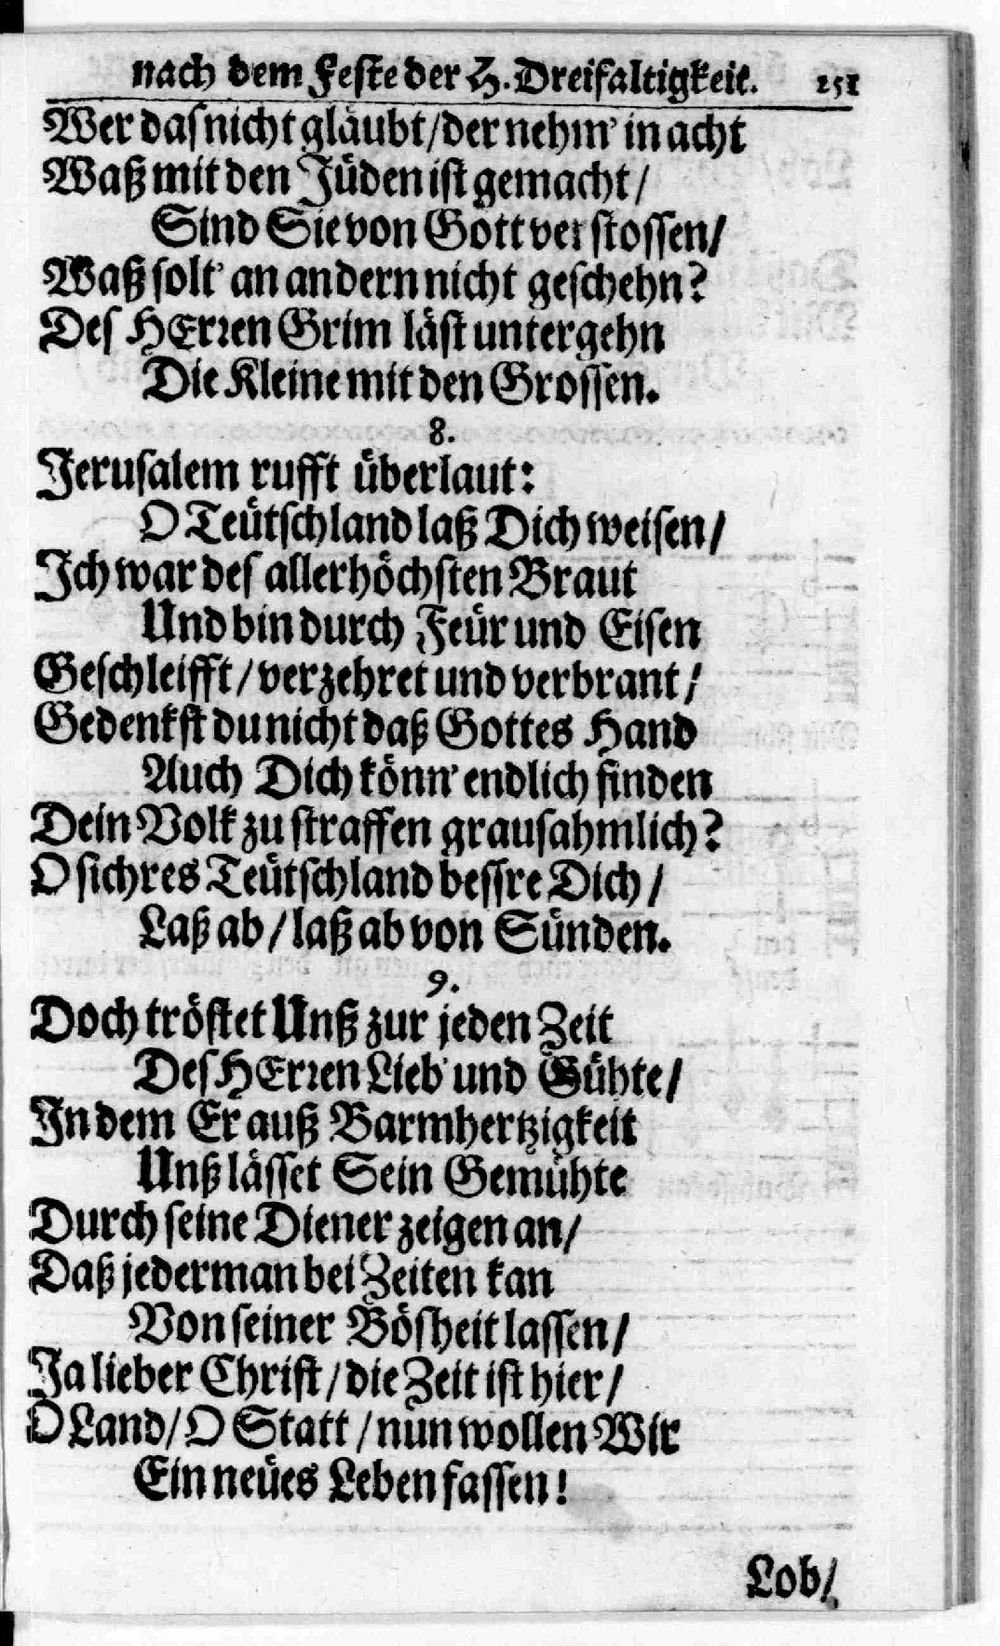 nach dem Feste der H. Dreifaltigkeit. 251
Wer das nicht gläubt / der nehm' in acht
Waß mit den Jüden ist gemacht /
Sind Sie von Gott verstossen /
Waß solt' an andern nicht geschehn?
Des HErren Grim läst untergehn
Die Kleine mit den Grossen.
8.
Jerusalem rufft überlaut:
O Teütschland laß Dich weisen /
Ich war des allerhöchsten Braut
Und bin durch Feür und Eisen
Geschleifft / verzehret und verbrant /
Gedenkst du nicht daß Gottes Hand
Auch Dich könn' endlich finden
Dein Volk zu straffen grausahmlich?
O sichres Teütschland bessre Dich /
Laß ab / laß ab von Sünden.
9.
Doch tröstet Unß zur jeden Zeit
Des HErren Lieb' und Gühte /
In dem Er auß Barmhertzigkeit
Unß lässet Sein Gemühte
Durch seine Diener zeigen an /
Daß jederman bei Zeiten kan
Von seiner Bösheit lassen /
Ja lieber Christ / die Zeit ist hier /
O Land / O Statt / nun wollen Wir
Ein neües Leben fassen!
Lob /